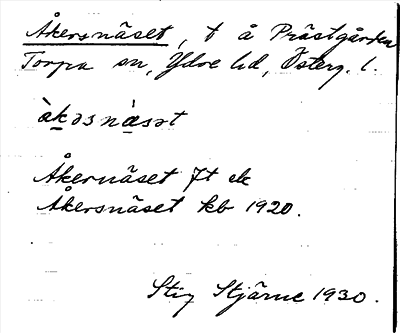 Åkersnäset, t å Prästgården
Torpa sn, Ydre hd, Österg. l.
àkəsnàsət
Åkernäset Jt ek
Åkersnäset kb 1920.
Stig Stjärne 1930.